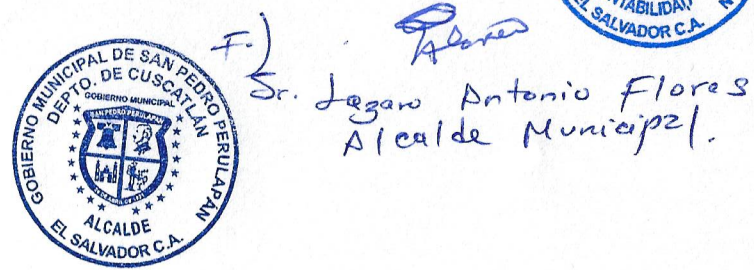 CONTABILIDAD
EL SALVADOR C.A.
F.)
Sr. Lazaro Antonio Flores
Alcalde Municipal.
GOBIERNO MUNICIPAL DE SAN PEDRO PERULAPÁN
DEPTO. DE CUSCATLÁN
GOBIERNO MUNICIPAL
SAN PEDRO PERULAPAN
ALCALDE
EL SALVADOR C.A.